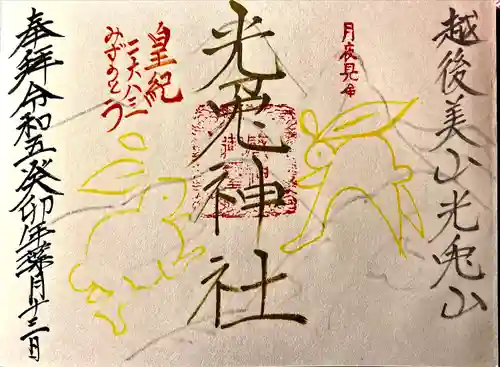 越後美山光兎山
月夜見命
光兎神社
皇紀
二六八三
みずのとう
奉拝令和五癸卯年葉月廿三日